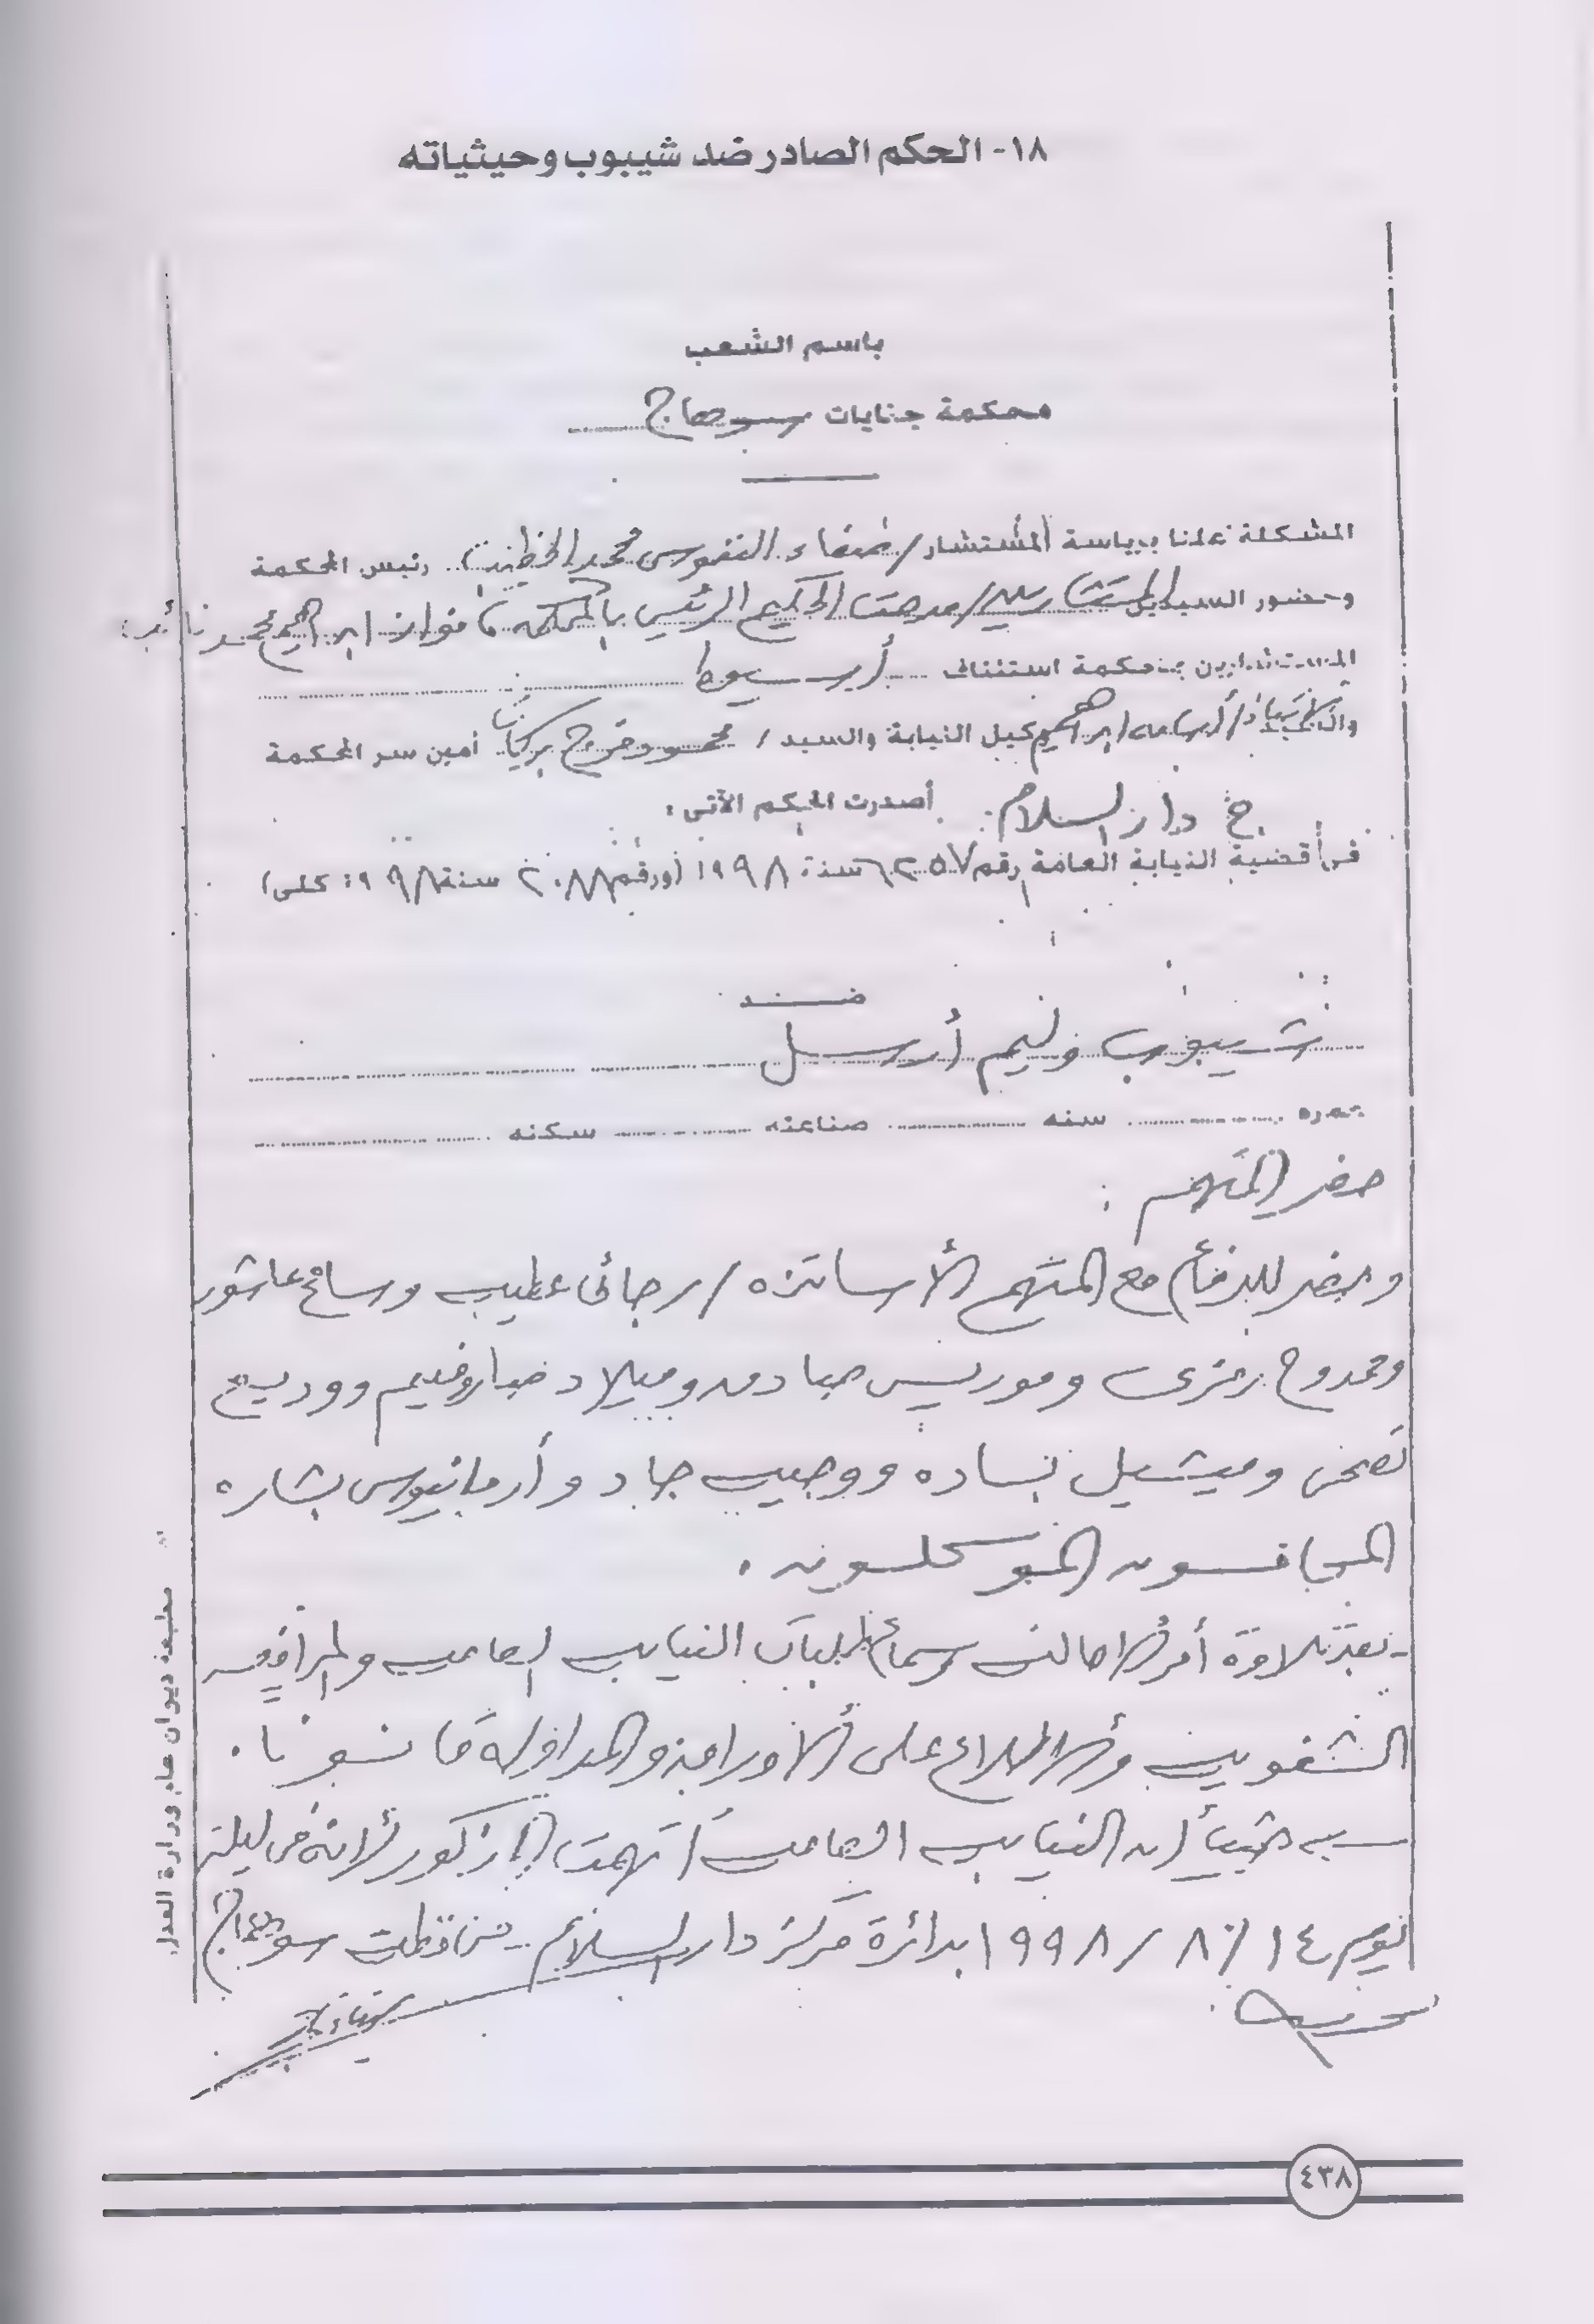 ١٨- الحكم الصادر ضد شيبوب وحيثياته
باسم الشعب
محكمة جنايات سوهاج
المشكلة علنا برياسة المستشار / صفاء الدين محمد رئيس المحكمة
وحضور السيدين المستشارين / مدحت الحكيم الرئيس بالمحكمة، فواز ابراهيم محمد نائب
المستشارين بمحكمة استئناف أسيوط
والأستاذ / أسامه ابراهيم وكيل النيابة والسيد / محمود فرج أمين سر المحكمة
ج دار السلام أصدرت الحكم الآتى :
فى قضية النيابة العامة رقم ٦٢٥٧ سنة ١٩٩٨ (ورقم ٢٠٨٨ سنة ١٩٩٨ كلى)
ضد
شيبوب وليم أرسل
عمره سنه صناعته سكنه
حضر المتهم :
وحضر للدفاع مع المتهم الأساتذه / رجائى عطيه وسامح عاشور
وممدوح رمزى وموريس صادق وميلاد وديع
وميشيل ووجيه جاد وأرمانيوس بشاره
المحامون الموكلون .
بعد تلاوة أمر الإحالة وسماع طلبات النيابة العامة والمرافعه
الشفوية والإطلاع على الأوراق والمداولة قانوناً .
من حيث أن النيابة العامة اتهمت المذكور لأنه فى ليلة
يوم ١٤ / ٨ / ١٩٩٨ بدائرة مركز دار السلام محافظة سوهاج
مطبعة ديوان عام وزارة العدل
٤٣٨